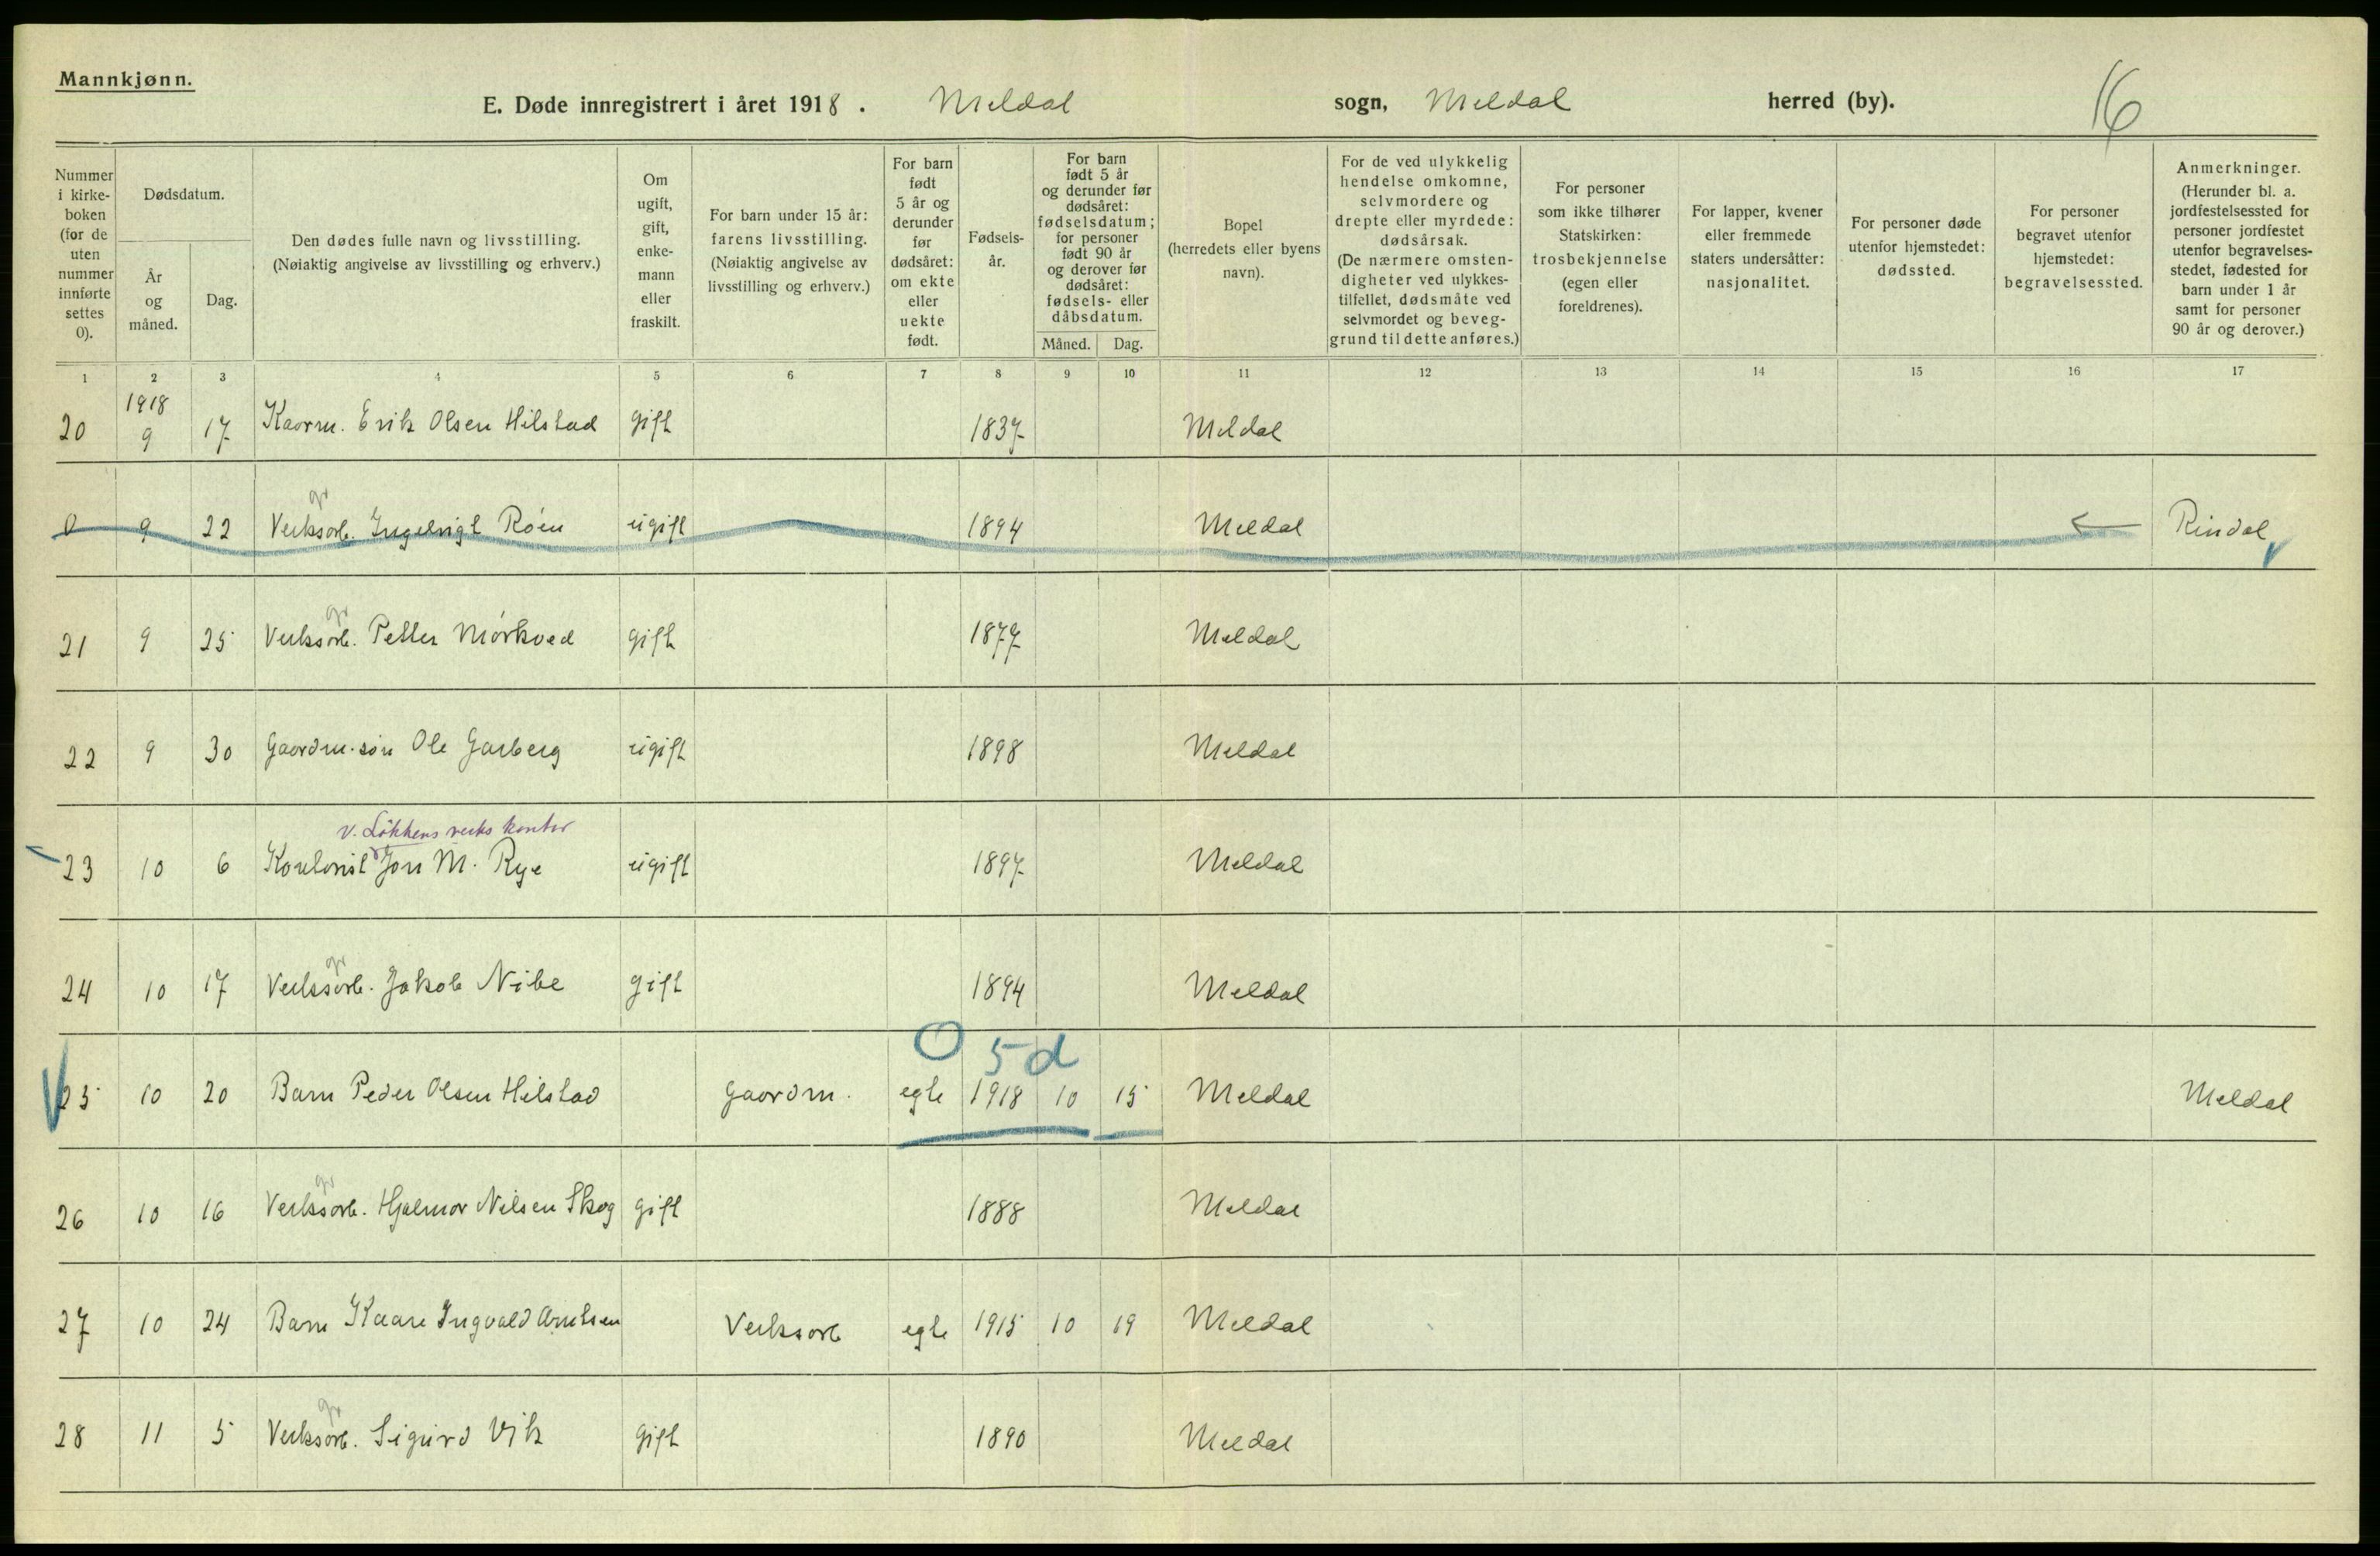 Mannkjønn.
E. Døde innregistrert i året 1918 . Meldal sogn, Meldal herred (by). 16
Nummer i kirke-boken (for de uten nummer innførte settes 0).
Dødsdatum.
År og måned.
Dag.
Den dødes fulle navn og livsstilling. (Nøiaktig angivelse av livsstilling og erhverv.)
Om ugift, gift, enke-mann eller fraskilt.
For barn under 15 år: farens livsstilling. (Nøiaktig angivelse av livsstilling og erhverv.)
For barn født 5 år og derunder før dødsåret: om ekte eller uekte født.
Fødsels-år.
For barn født 5 år og derunder før dødsåret: fødselsdatum; for personer født 90 år og derover før dødsåret: fødsels- eller dåbsdatum.
Måned. Dag.
Bopel (herredets eller byens navn).
For de ved ulykkelig hendelse omkomne, selvmordere og drepte eller myrdede: dødsårsak. (De nærmere omsten-digheter ved ulykkes-tilfellet, dødsmåte ved selvmordet og beveg-grund til dette anføres.)
For personer som ikke tilhører Statskirken: trosbekjennelse (egen eller foreldrenes).
For lapper, kvener eller fremmede staters undersåtter: nasjonalitet.
For personer døde utenfor hjemstedet: dødssted.
For personer begravet utenfor hjemstedet: begravelsessted.
Anmerkninger. (Herunder bl. a. jordfestelsessted for personer jordfestet utenfor begravelses-stedet, fødested for barn under 1 år samt for personer 90 år og derover.)
1 2 3 4 5 6 7 8 9 10 11 12 13 14 15 16 17
1918
20 9 17 Kaarm. Erik Olsen Hilstad gift 1837 Meldal
gr
0 9 22 Verksarb. Ingebrigt Röen ugift 1894 Meldal Rindal
gr
21 9 25 Verksarb. Petter Mörkved gift 1877 Meldal
22 9 30 Gaardm.sön Ole Garberg ugift 1898 Meldal
v. Lökkens verks kontor
23 10 6 Kontorist Jon M. Rye ugift 1897 Meldal
gr
24 10 17 Verksarb. Jakob Nibe gift 1894 Meldal
O 5 d
25 10 20 Barn Peder Olsen Hilstad Gaardm. egte 1918 10 15 Meldal Meldal
gr
26 10 16 Verksarb. Hjalmar Nilsen Skog gift 1888 Meldal
27 10 24 Barn Kaare Ingvald Arntsen Verksarb egte 1915 10 19 Meldal
gr
28 11 5 Verksarb. Sigurd Vik gift 1890 Meldal